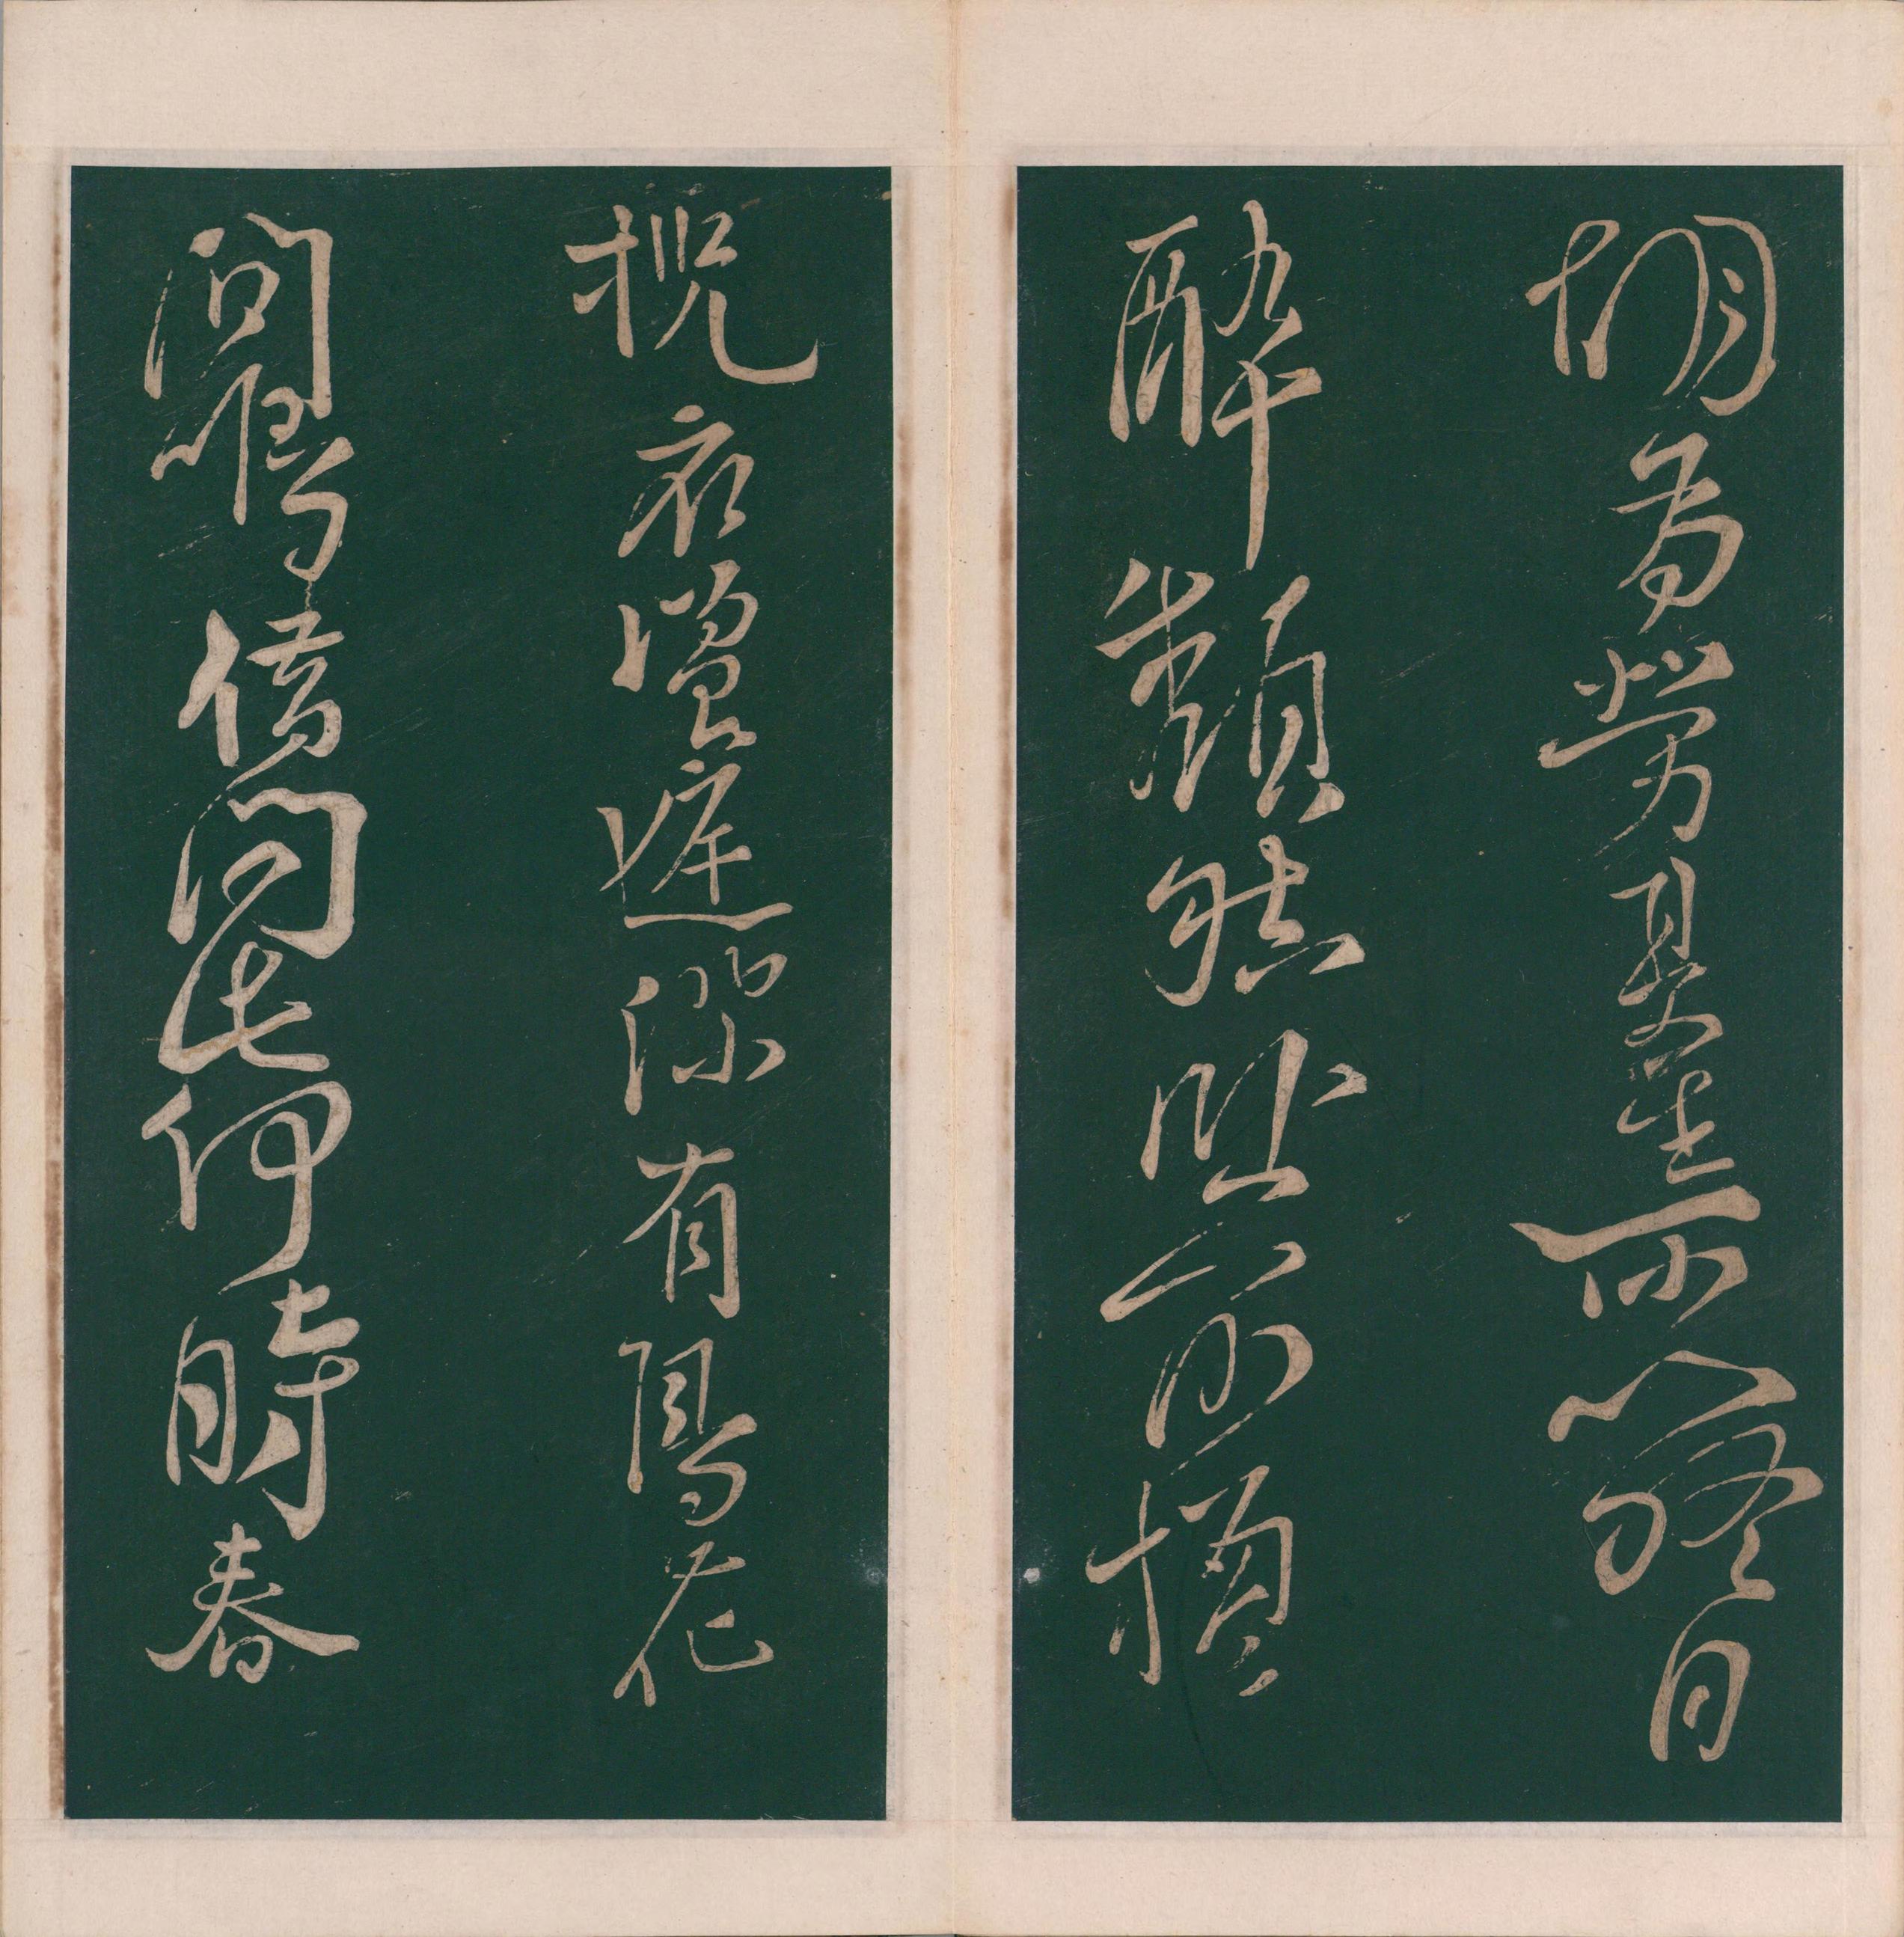 胡為勞其生所以終日
醉頹然臥前楹
攬衣庭際有鳥花
間鳴借問此何時春